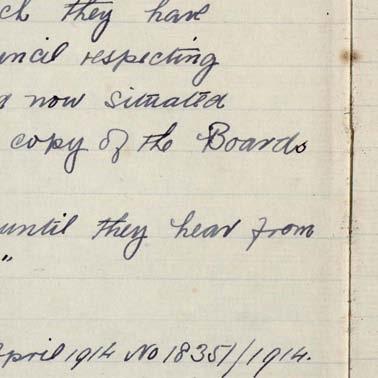 ch they have
uncil respecting
d now situated
copy of the Boards
until they hear from
"
April 1914 No 18351/1914.